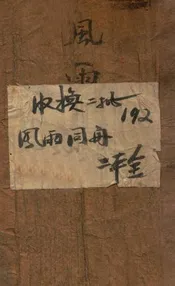 風雨
收換二批
192
風雨同舟
二本全